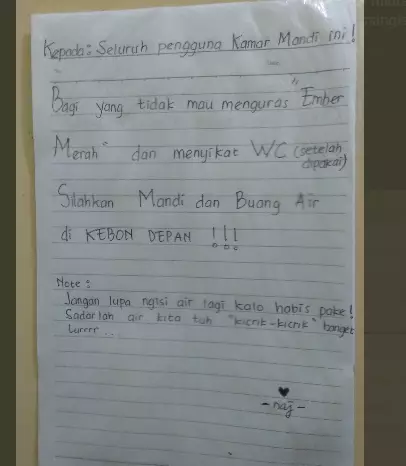 Kepada: Seluruh pengguna Kamar Mandi ini!
Bagi yang tidak mau menguras "Ember
Merah" dan menyikat WC (setelah
dipakai)
Silahkan Mandi dan Buang Air
di KEBON DEPAN !!!
Note:
Jangan lupa ngisi air lagi kalo habis pake!
Sadarlah air kita tuh "kicrik-kicrik" banget
Lurrrr..
-naj-